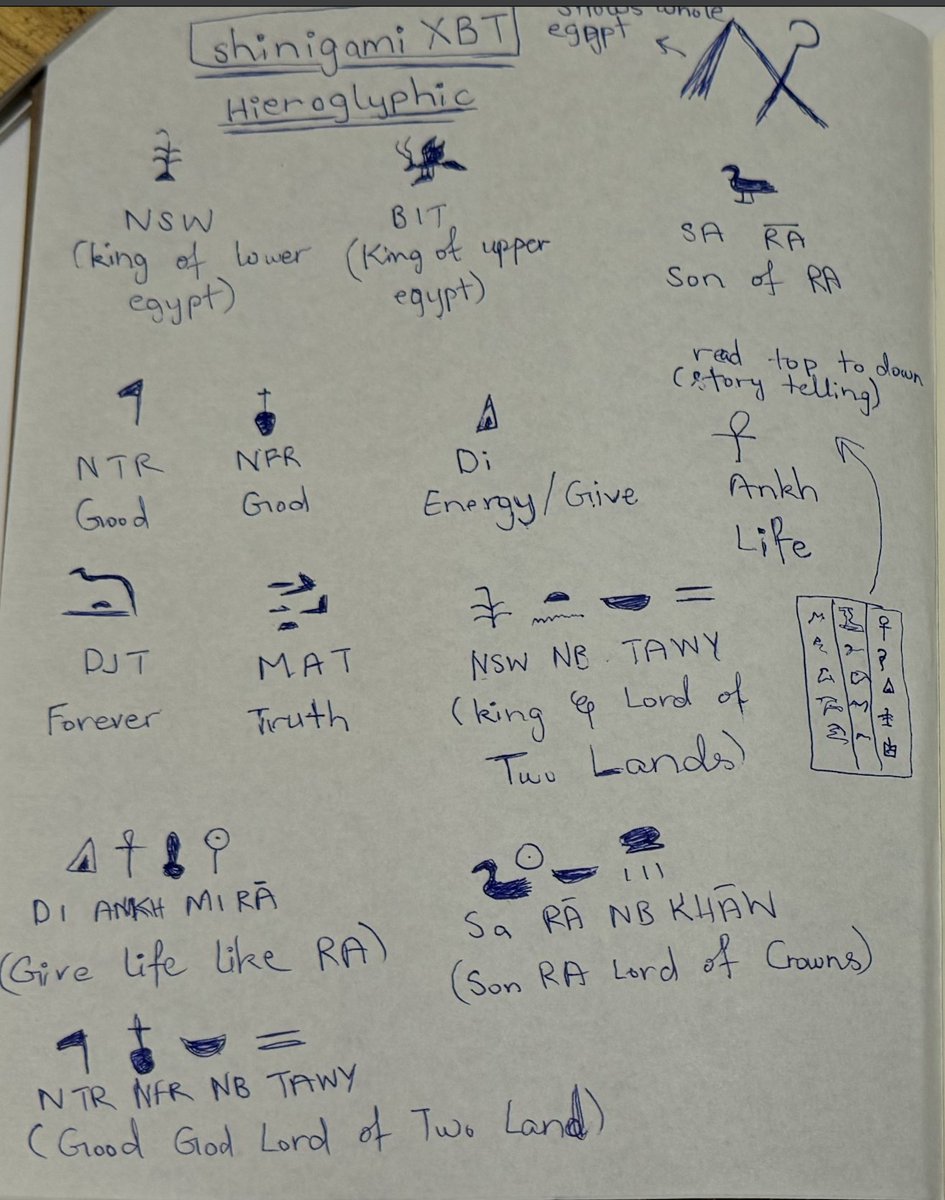 shinigami XBT
shows whole
egypt
Hieroglyphic
NSW
(king of lower
egypt)
BIT
(King of upper
egypt)
SA RĀ
Son of RA
read top to down
(story telling)
NTR
Good
NFR
God
Di
Energy/Give
Ankh
Life
DJT
Forever
MAT
Truth
NSW NB TAWY
(king & Lord of
Two Lands)
DI ANKH MI RĀ
(Give life like RA)
Sa RĀ NB KHĀW
(Son RA Lord of Crowns)
NTR NFR NB TAWY
(Good God Lord of Two Land)